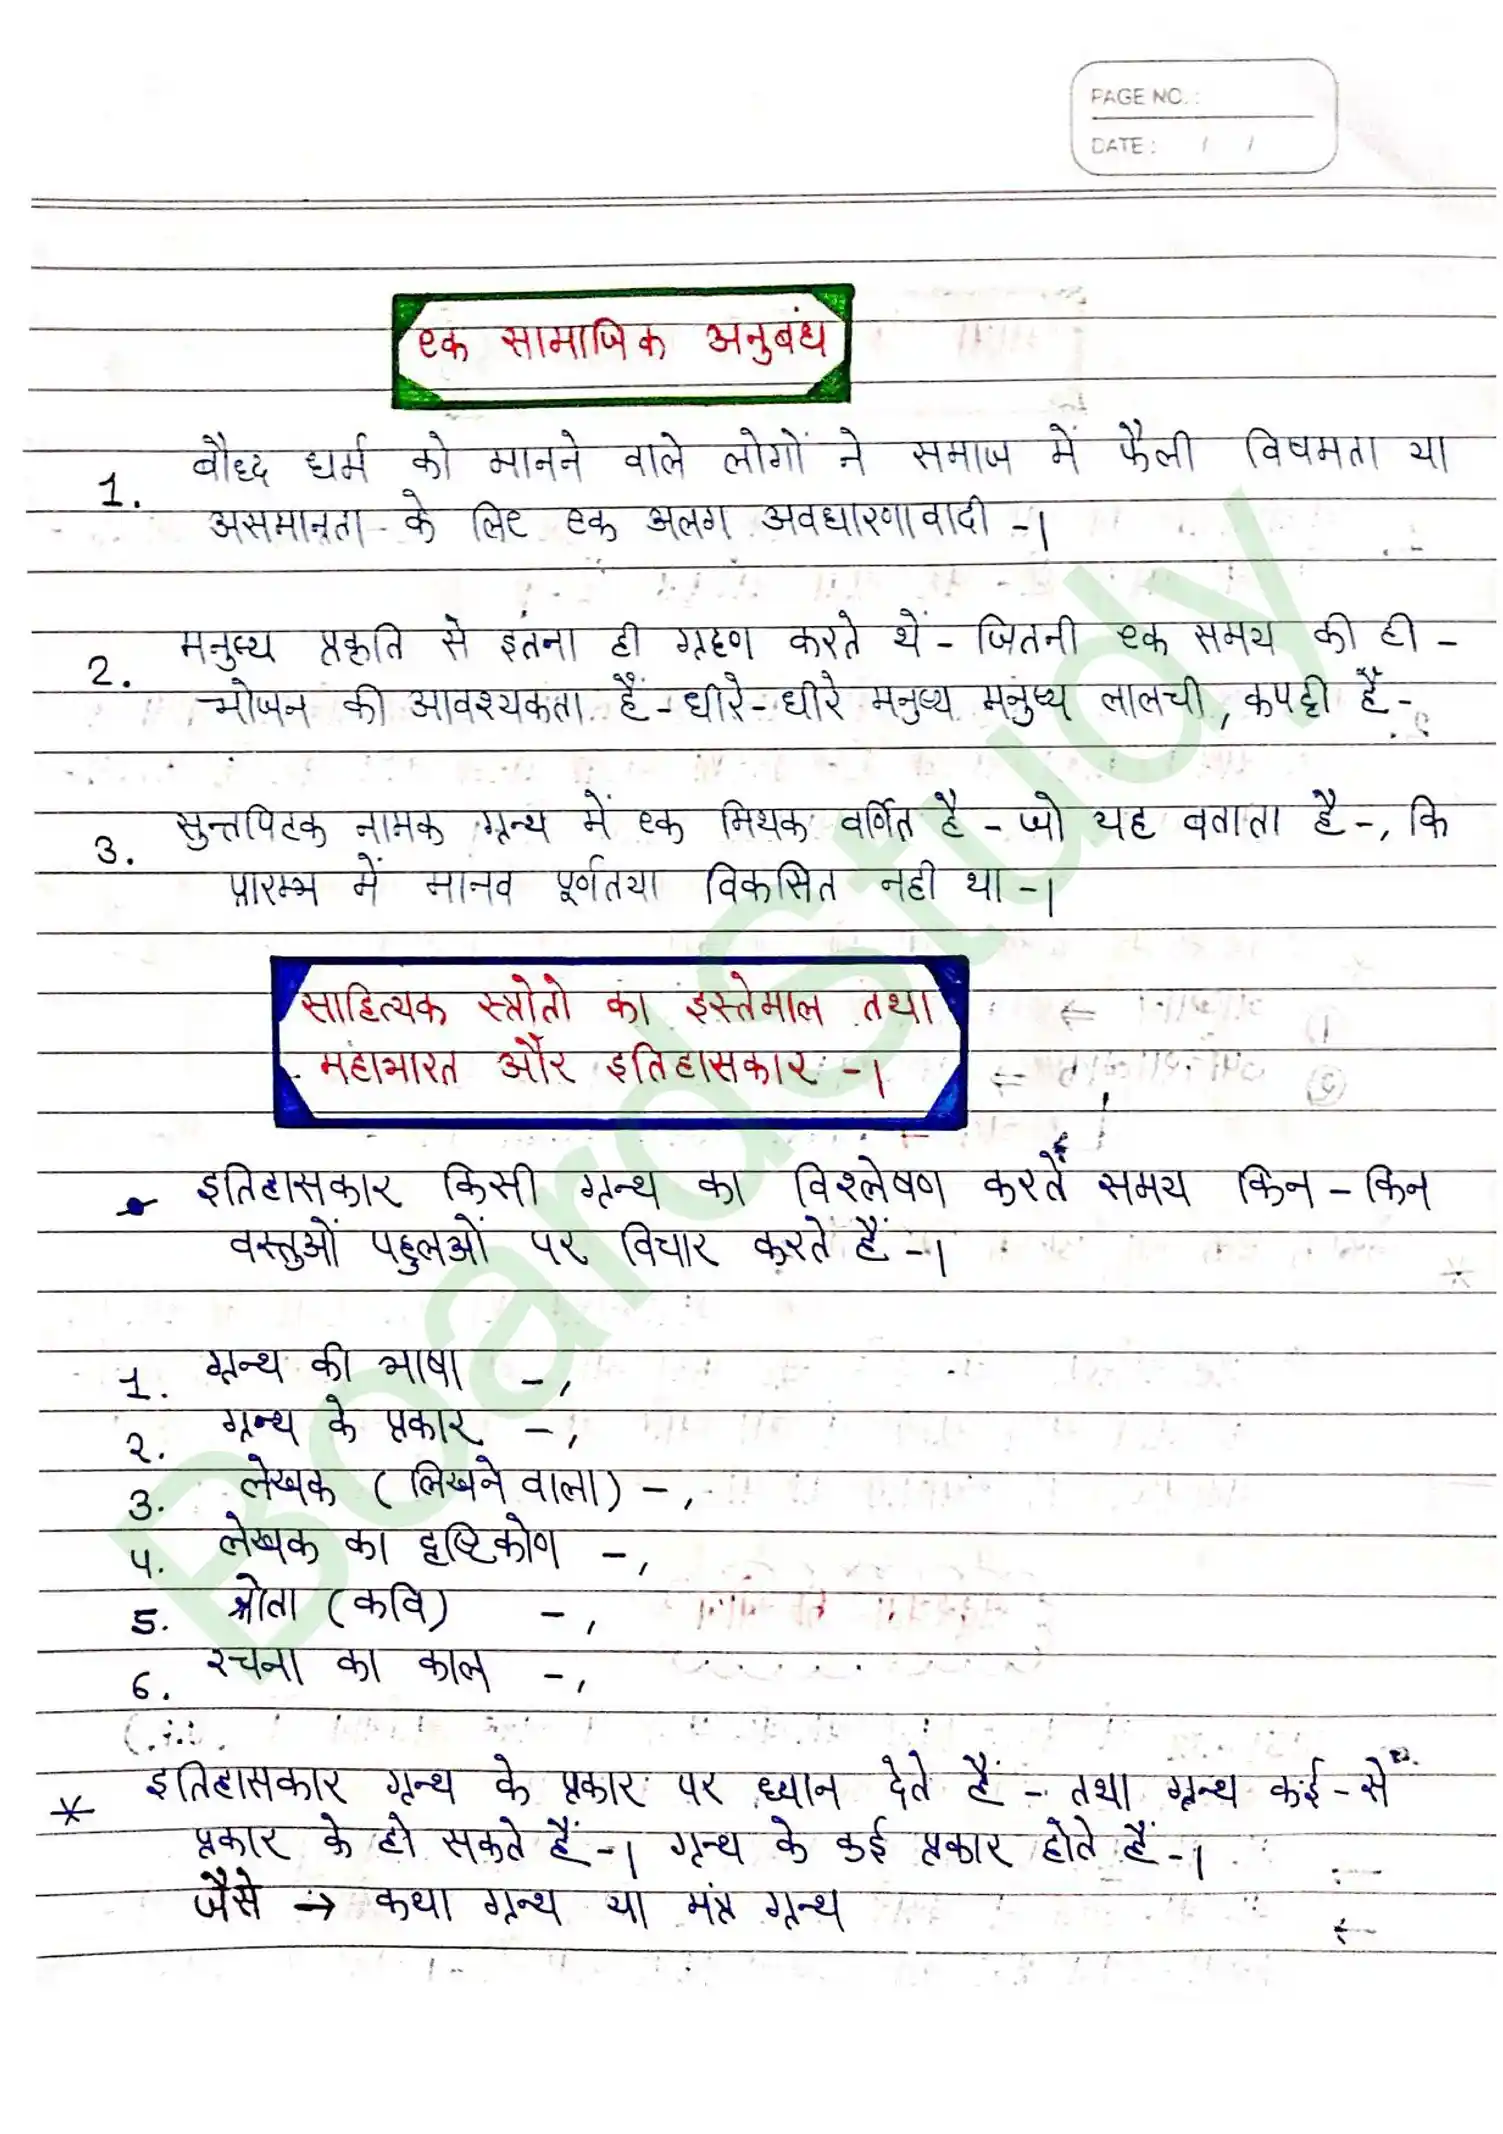 PAGE NO. :
DATE : / /
एक सामाजिक अनुबंध
1. बौध्द धर्म को मानने वाले लोगों ने समाज में फैली विषमता या
असमानता के लिए एक अलग अवधारणावादी -।
2. मनुष्य प्रकृति से इतना ही ग्रहण करते थें - जितनी एक समय की ही -
भोजन की आवश्यकता हैं - धीरे-धीरे मनुष्य मनुष्य लालची, कपट्टी हैं -
3. सुन्तपिटक नामक ग्रन्थ में एक मिथक वर्णित है - जो यह बताता है -, कि
प्रारम्भ में मानव पूर्णतया विकसित नही था -।
साहित्यक स्त्रोतो का इस्तेमाल तथा
महाभारत और इतिहासकार -।
इतिहासकार किसी ग्रन्थ का विश्लेषण करते समय किन - किन
वस्तुओं पहुलओं पर विचार करते हैं -।
1. ग्रन्थ की भाषा -,
2. ग्रन्थ के प्रकार -,
3. लेखक ( लिखने वाला ) -,
4. लेखक का दृष्टिकोण -,
5. श्रोता ( कवि ) -,
6. रचना का काल -,
* इतिहासकार ग्रन्थ के प्रकार पर ध्यान देते हैं - तथा ग्रन्थ कई - से
प्रकार के हो सकते हैं -। ग्रन्थ के कई प्रकार होते हैं -।
जैसे → कथा ग्रन्थ या मंत्र ग्रन्थ
BoardStudy